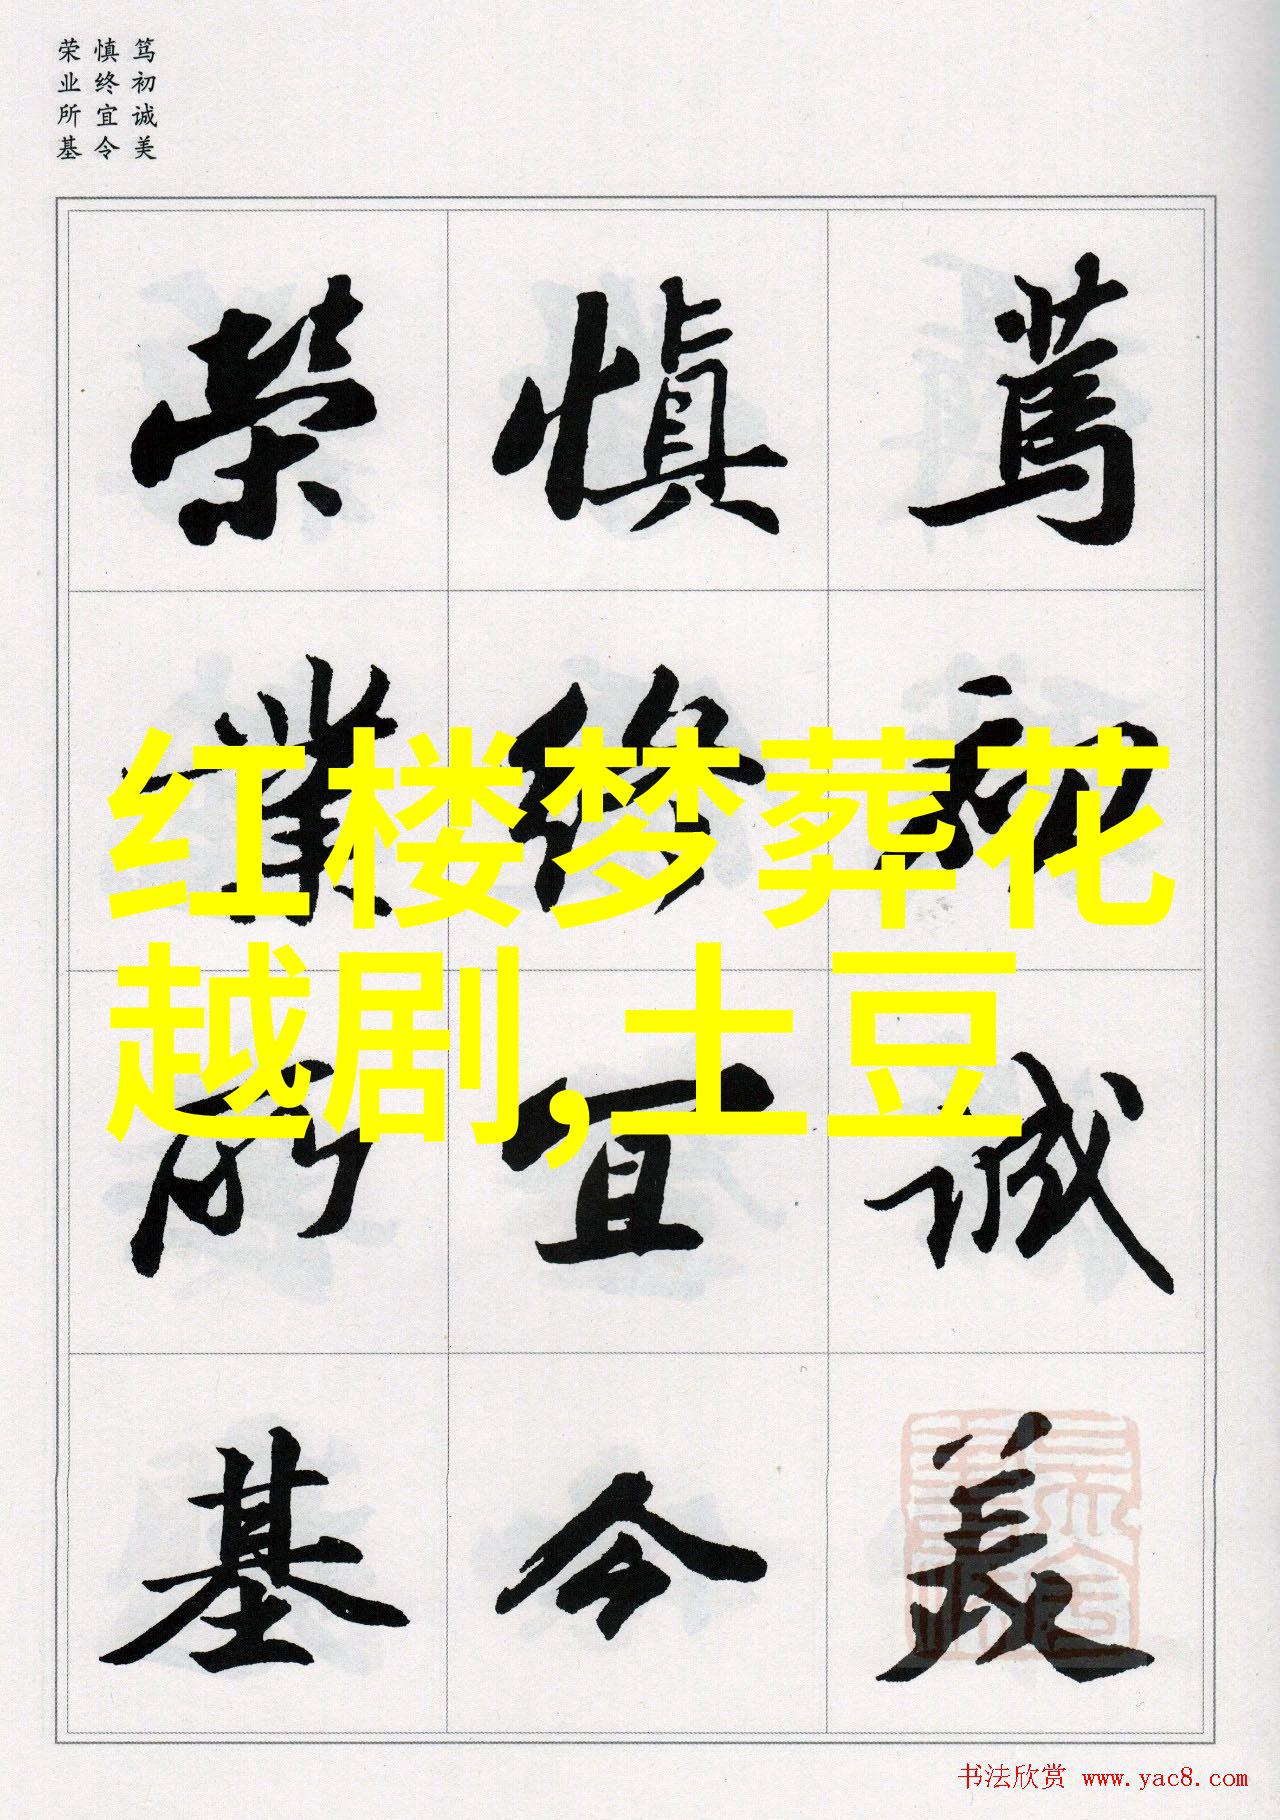 笃初诚美
慎终宜令
荣业所基
篤初誠美
慎終宜令
榮業所基
红楼梦葬花
越剧,土豆
书法欣赏 www.yac8.com